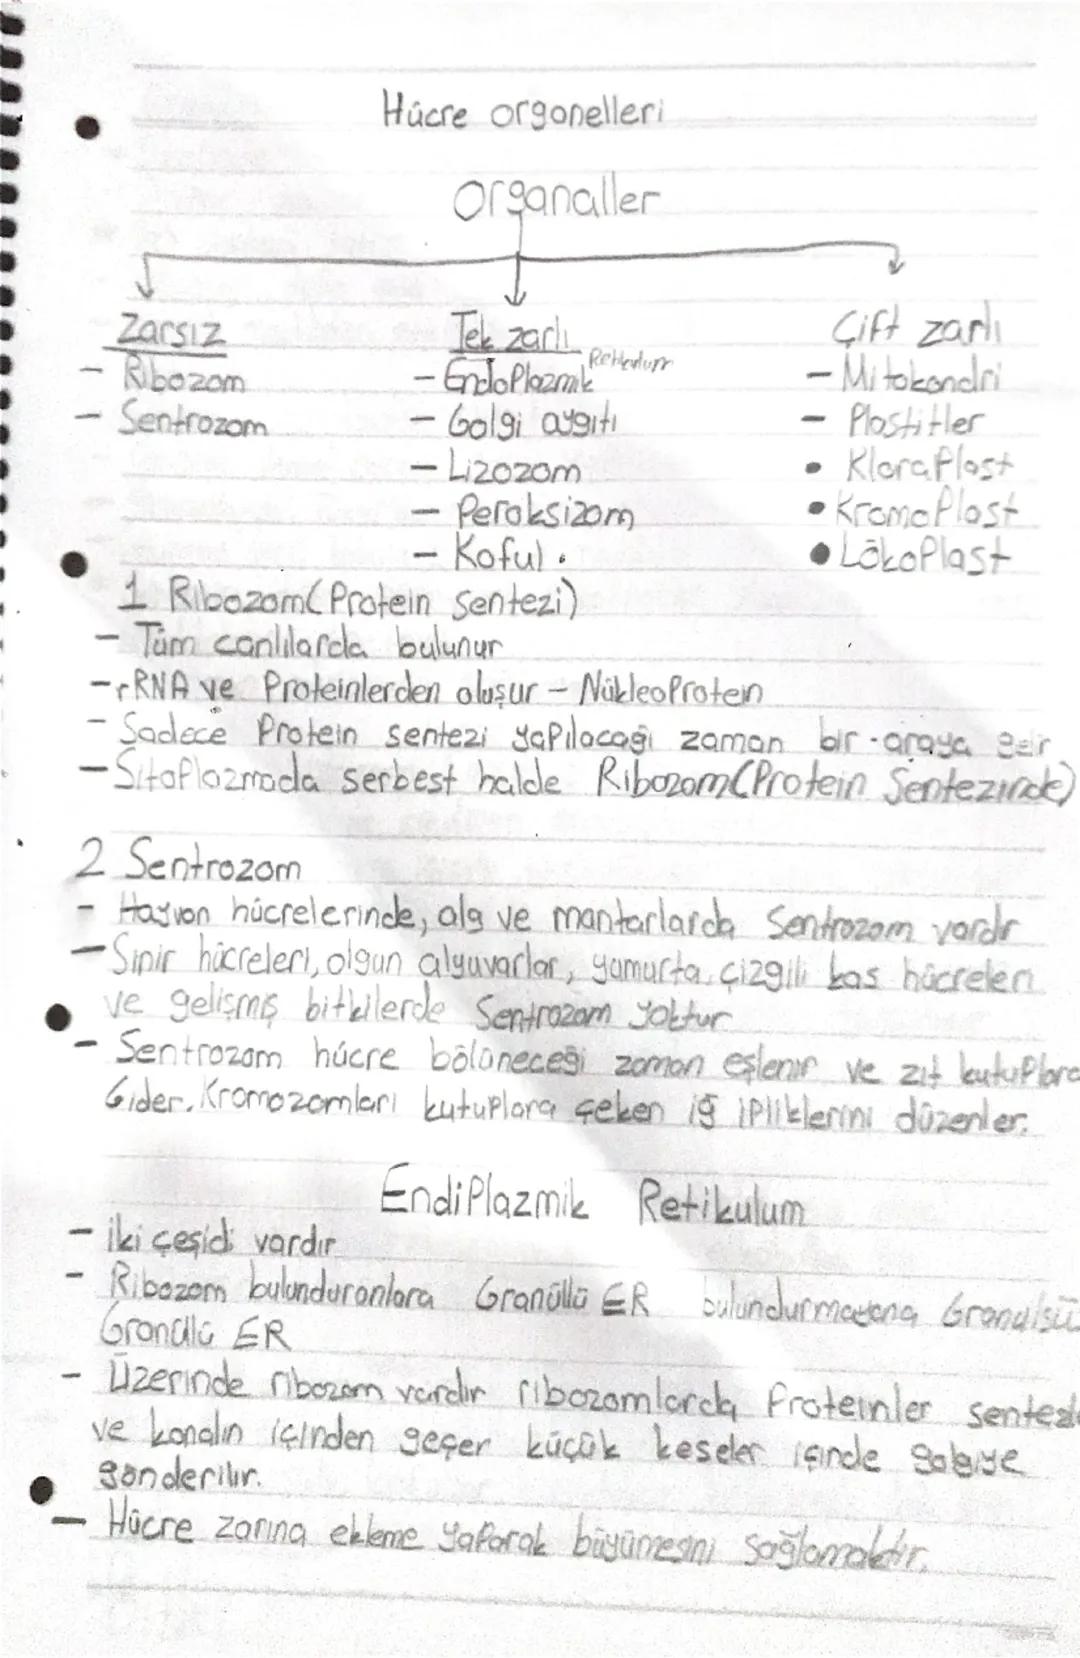 Hücre organelleri
Organaller
Zarsız
- Ribozom
- Sentrozom
Tek zarlı
- EndoPlazmik Retikulum
- Golgi aygıtı
- Lizozom
- Peroksizom
- Koful
Çift zarlı
- Mitokondri
- Plastitler
• KloroPlast
• KromoPlast
• LökoPlast
1 Ribozom (Protein sentezi)
- Tüm canlılarda bulunur
- rRNA ve Proteinlerden oluşur - NükleoProtein
- Sadece Protein sentezi yaPılacağı zaman bir araya gelir
- SitoPlazmada serbest halde Ribozom (Protein Sentezinde)
2 Sentrozom
- Hayvan hücrelerinde, alg ve mantarlarda Sentrozom vardır
- Sinir hücreleri, olgun alyuvarlar, yumurta, çizgili kas hücreleri
ve gelişmiş bitkilerde Sentrozom yoktur
- Sentrozom hücre bölüneceği zaman eşlenir ve zıt kutuPlara
Gider. Kromozomları kutuPlara çeken iğ iPliklerini düzenler.
EndiPlazmik Retikulum
- iki çeşidi vardır
- Ribozom bulunduranlara Granüllü ER bulundurmayana
Granüllü ER
- Üzerinde ribozom vardır ribozomlarda Proteinler
ve kanalın içinden geçer küçük keseler içinde golgiye
gönderilir.
- Hücre zarına ekleme yaParak büyümesini sağlamaktır.